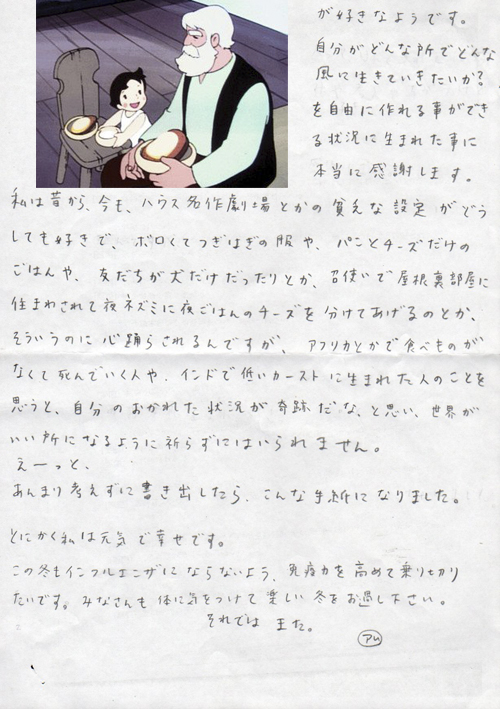 が好きなようです。
自分がどんな所でどんな
風に生きていきたいか?
を自由に作れる事ができ
る状況に生まれた事に
本当に感謝します。
私は昔から、今も、ハウス名作劇場とかの貧乏な設定がどう
しても好きで、ボロくてつぎはぎの服や、パンとチーズだけの
ごはんや、友だちが犬だけだったりとか、召使いで屋根裏部屋に
住まわされて夜ネズミに夜ごはんのチーズを分けてあげるのとか、
そういうのに心踊らされるんですが、アフリカとかで食べものが
なくて死んでいく人や、インドで低いカーストに生まれた人のことを
思うと、自分のおかれた状況が奇跡だな、と思い、世界が
いい所になるように祈らずにはいられません。
えーっと、
あんまり考えずに書き出したら、こんな手紙になりました。
とにかく私は元気で幸せです。
この冬もインフルエンザにならないよう、免疫力を高めて乗り切り
たいです。みなさんも体に気をつけて楽しい冬をお過し下さい。
それでは また。
アい